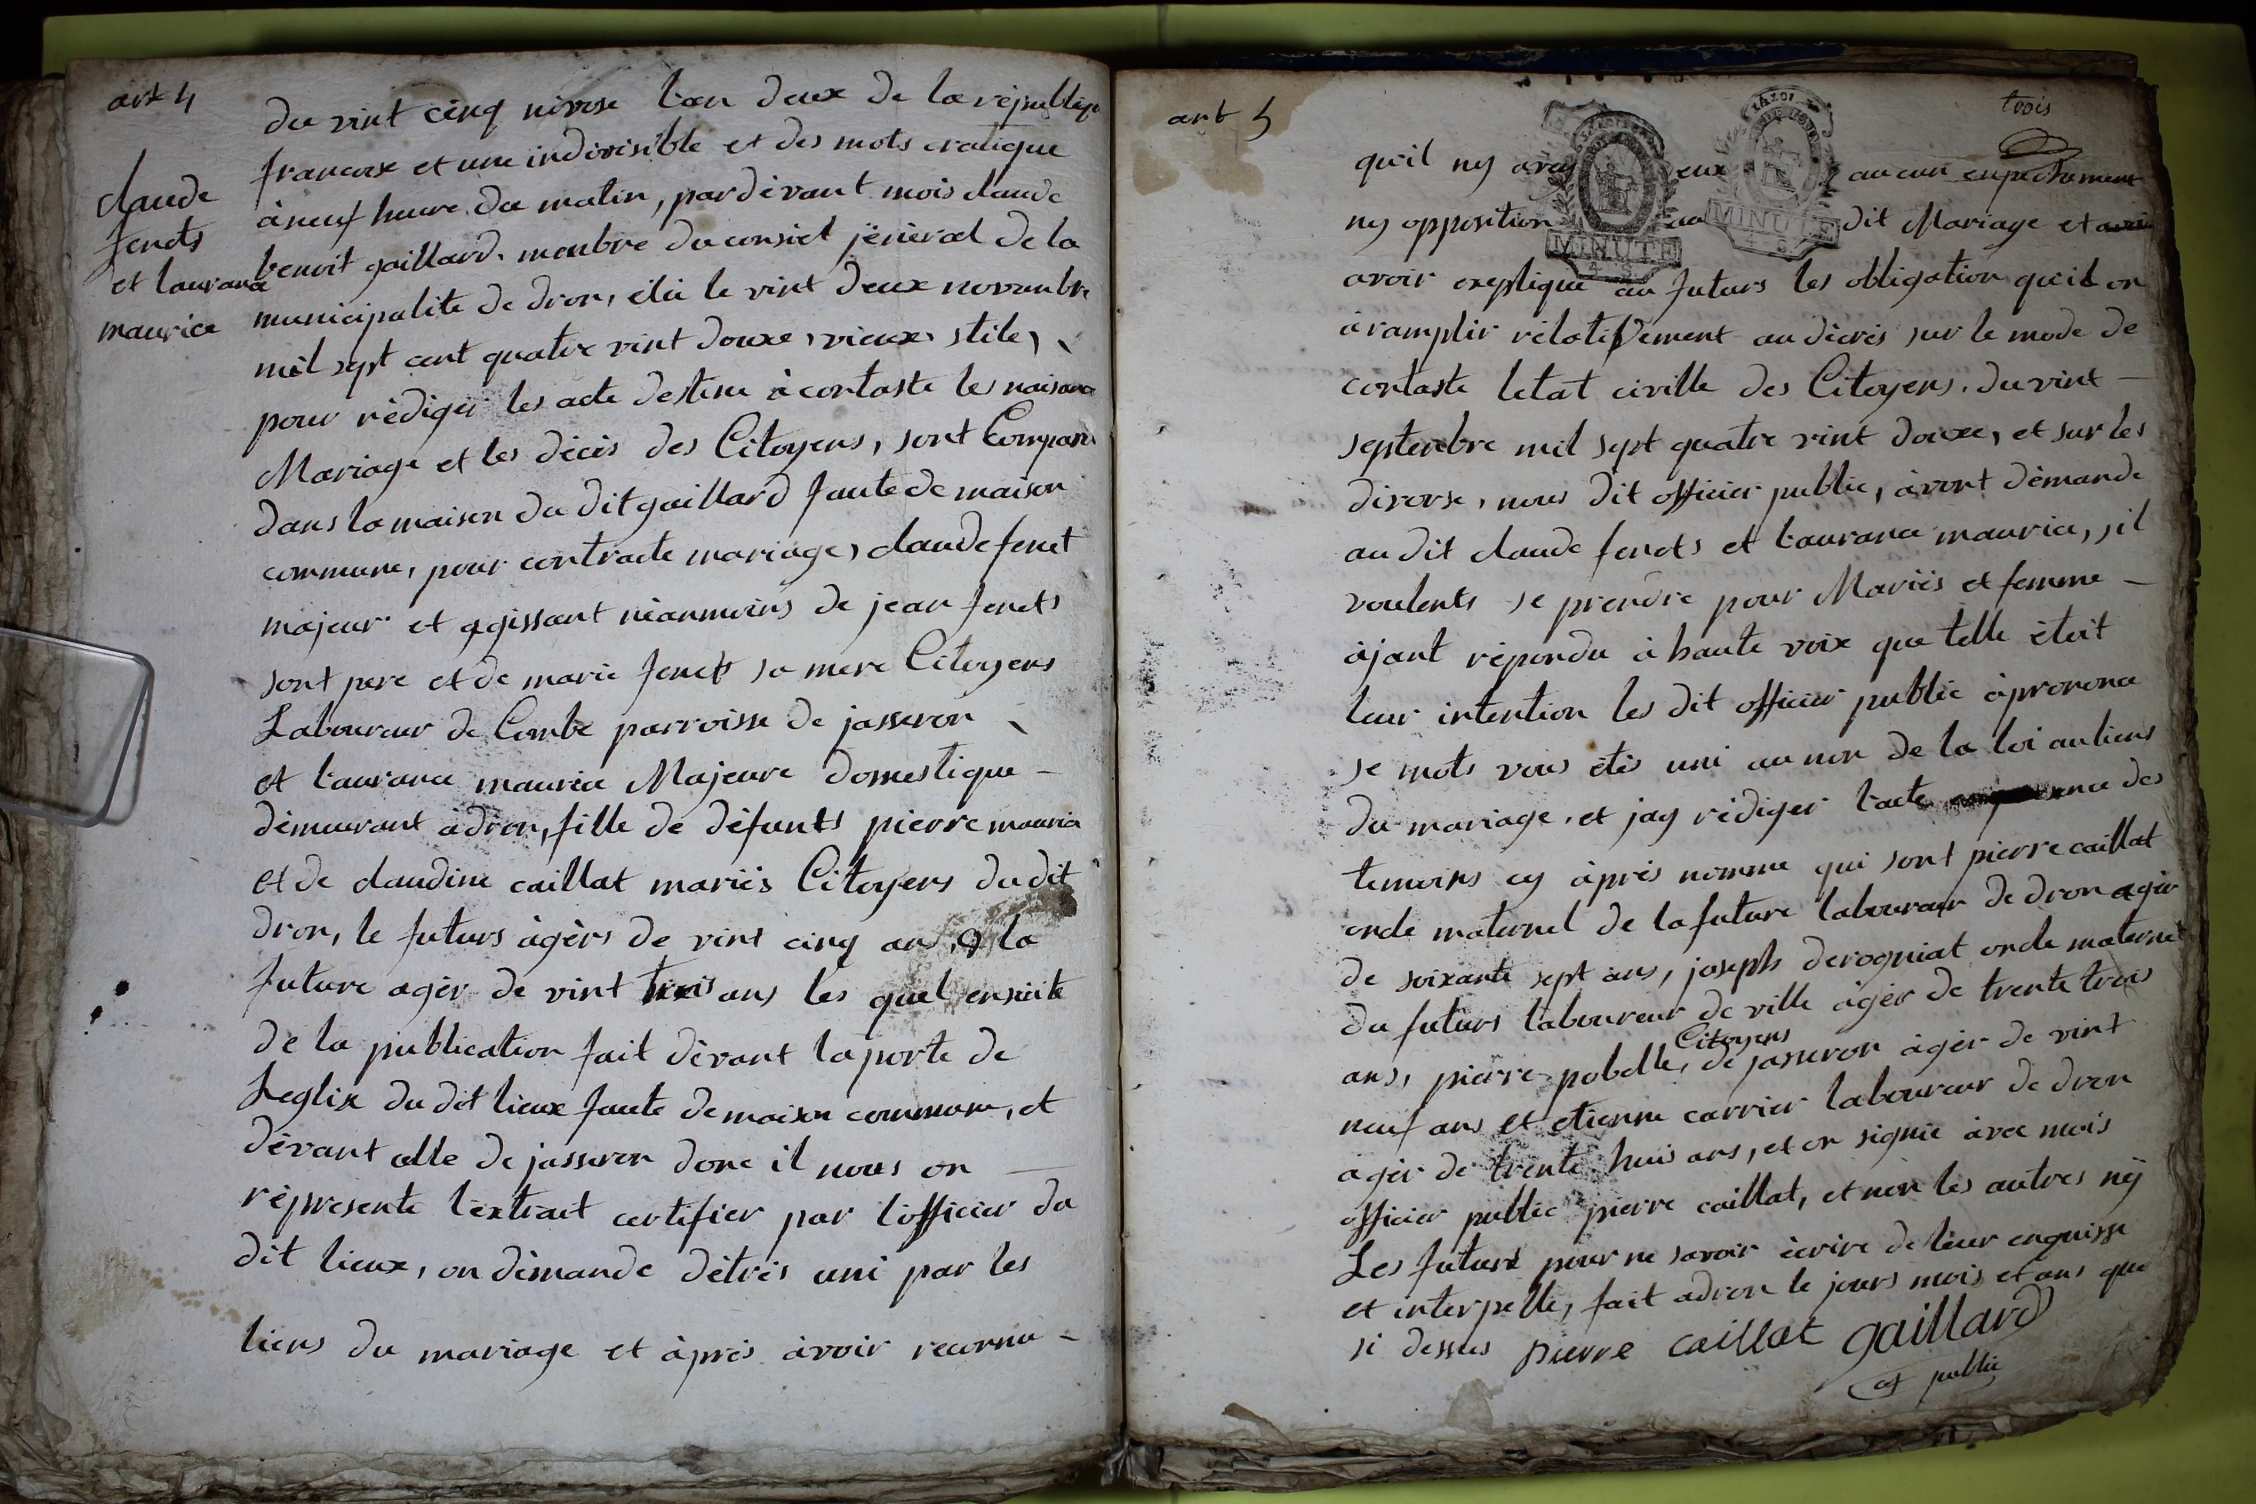 art 4
claude
fenets
et laurance
maurice
du vint cinq nivose l'an deux de la republique
francoise et une indivisible et des mots cratique
à neuf heure du matin, pardèvant mois claude
benoit gaillard. menbre du consiel jeneral de la
municipalite de dron, élû le vint deux novanbre
mil sept cent quatre vint douxe, vieux, stile,
pour rèdiger les acte destine à contaste les naisance
Mariage et les dècès des Citoyens, sont Comparu
dans la maison du dit gaillard faute de maison
commune, pour contracte mariage, claude fenet
majeur et agissant nèanmoins de jean fenets
sont pere et de marie fenets sa mere Citoyens
Laboureur de Combe parroisse de jasseron
et laurance maurice Majeure domestique
dèmeurant à dron, fille de dèfunts pierre maurice
et de claudine caillat mariès Citoyens du dit
dron, le futurs àgèrs de vint cinq ans, & la
future agèr de vint trois ans les quel ensuite
de la publication fait dèvant la porte de
Leglise du dit lieux faute de maison commune, et
dèvant celle de jasseron donc il nous on
rèpresente l'extrait certifier par l'officier du
dit lieux, on dèmande dètrès uni par les
liens du mariage et àprès àvoir reconnu
art 5
trois
MINUTE
MINUTE
qu'il ny avoit eux aucun enpechement
ny opposition au dit Mariage et
avoir explique au futurs les obligation qu'il on
à ramplir rèlativement au dècrès sur le mode de
contaste letat civille des Citoyens, du vint
septenbre mil sept quatre vint douxe, et sur les
divorse, nous dit officier public, àvont dèmande
au dit claude fenets et laurance maurice, s'il
voulents se prendre pour Mariès et femme
àjant rèpondu à haute voix que telle ètoit
leur intention les dit officier public àpronona
se mots vous ètès uni au nom de la loi au liens
du mariage, et jay rèdiger l'acte des
temoins cy àprès nomme qui sont pierre caillat
oncle maternel de la future laboureur de dron agèr
de soixante sept ans, joseph derogniat oncle maternel
du futurs laboureur de ville àgèr de trente trois
ans, pierre pobelle, Citoyens de jasseron àgèr de vint
neuf ans et etienne carrier laboureur de dron
agèr de trente huis ans, et on signie àvec mois
officier public pierre caillat, et non les autres nÿ
Les futurs pour ne savoir ècrire de leur enquisse
et interpelle, fait adron le jours mois et ans que
si dessus pierre caillat gaillard
of public